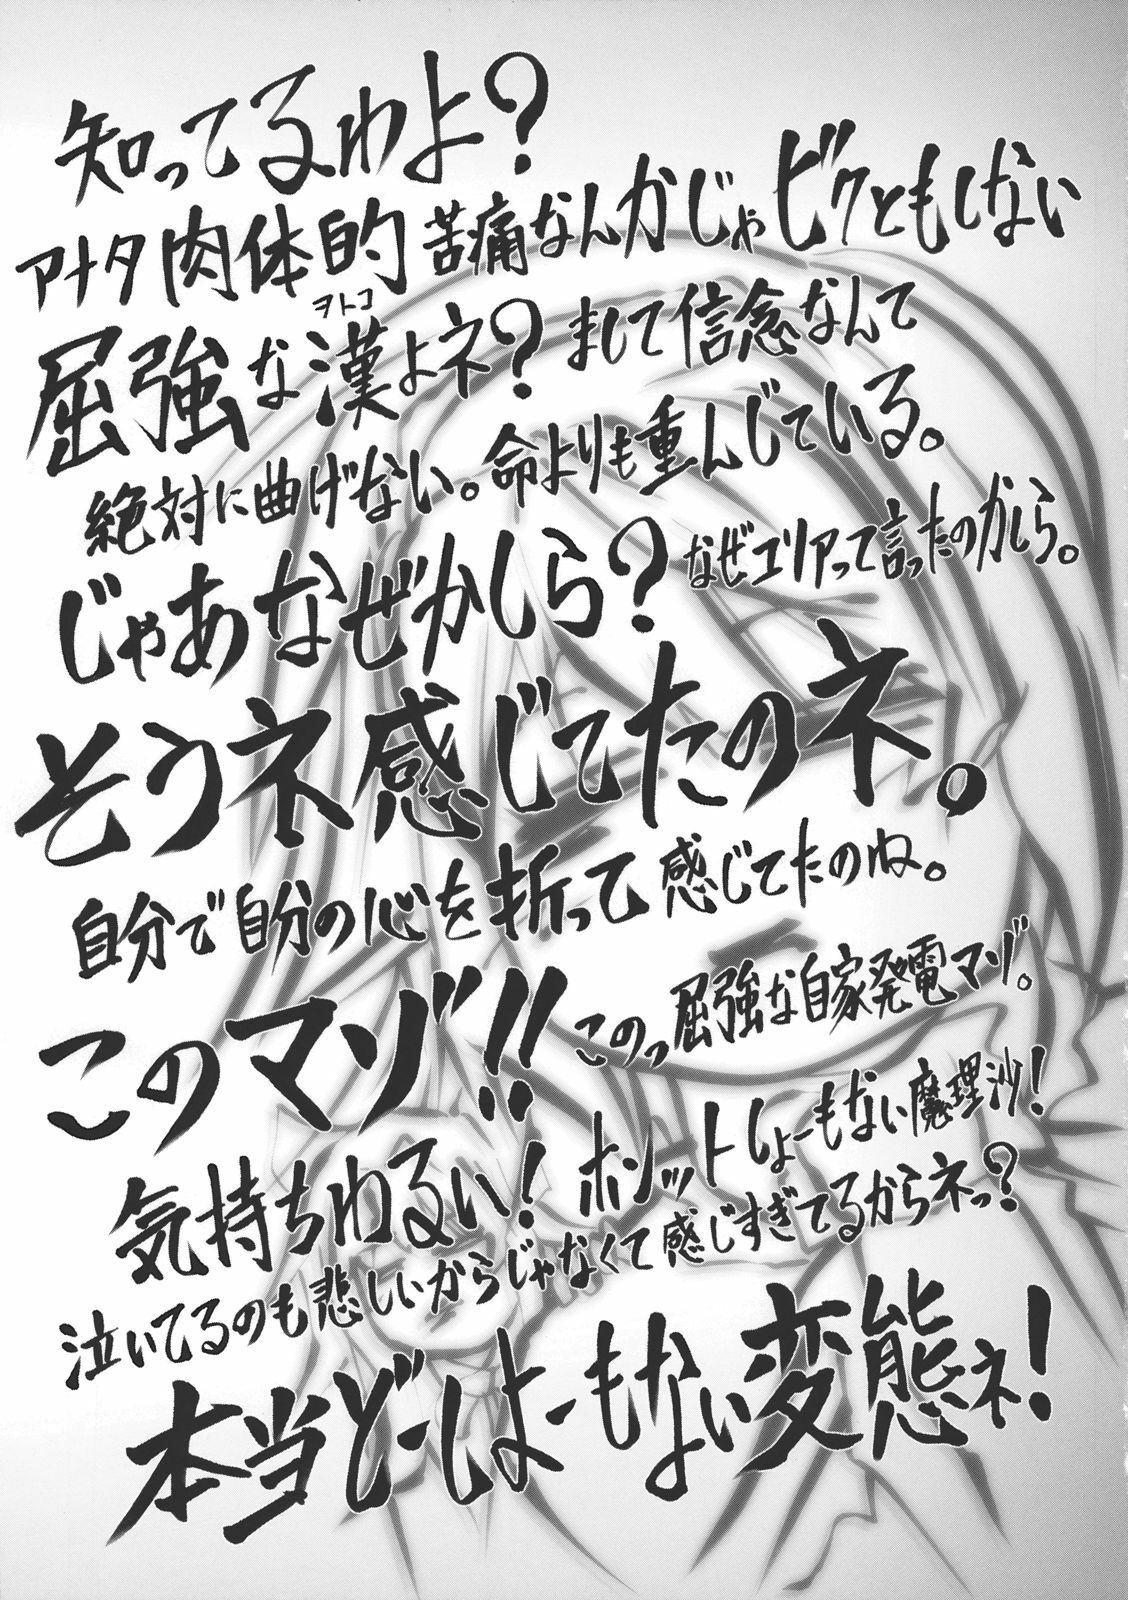 知ってるわよ?
アナタ肉体的苦痛なんかじゃビクともしない
屈強な漢よネ?まして信念なんて
ヲトコ
絶対に曲げない。命よりも重んじている。
じゃあなぜかしら?なぜエリアって言ったのかしら。
そうネ感じてたのネ。
自分で自分の心を折って感じてたのね。
このマゾ!!このっ屈強な自家発電マゾ。
気持ちわるい!ホンットしょーもない魔理沙!
泣いてるのも悲しいからじゃなくて感じすぎてるからネっ?
本当どーしよーもない変態ネ!